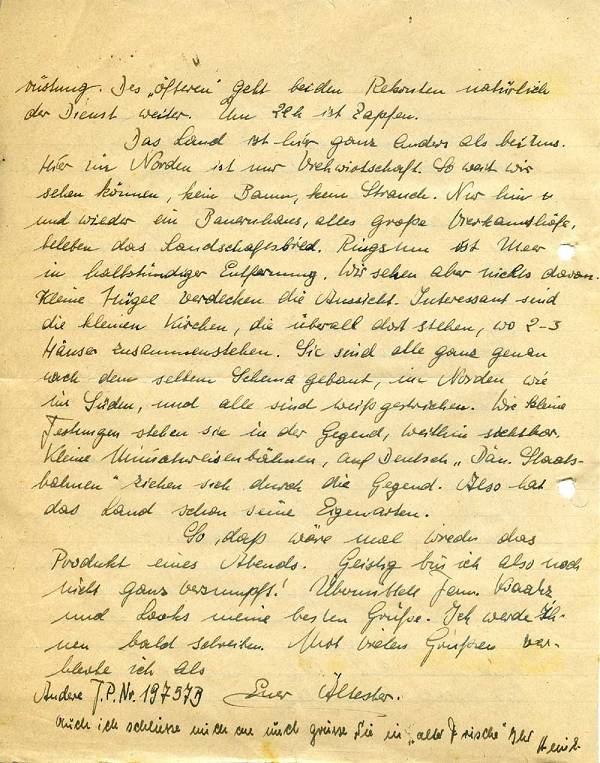 rüstung. Des „öfteren" geht bei den Rekruten natürlich
der Dienst weiter. Um 22h ist Zapfen.
Das Land ist hier ganz anders als bei uns.
Hier im Norden ist nur Viehwirtschaft. So weit wir
sehen können, kein Baum, kein Strauch. Nur hin u
und wieder ein Bauernhaus, alles große Vierkanthöfe,
beleben das Landschaftsbild. Ringsum ist Meer
in halbstündiger Entfernung. Wir sehen aber nichts davon.
Kleine Hügel verdecken die Aussicht. Interessant sind
die kleinen Kirchen, die überall dort stehen, wo 2-3
Häuser zusammenstehen. Sie sind alle ganz genau
nach dem selben Schema gebaut, im Norden wie
im Süden, und alle sind weiß gestrichen. Wie kleine
Festungen stehen sie in der Gegend, weithin sichtbar.
Kleine Miniatureisenbahnen, auf Deutsch „Dän. Staats-
bahnen" ziehen sich durch die Gegend. Also hat
das Land schon seine Eigenarten.
So, daß wäre mal wieder das
Produkt eines Abends. Geistig bin ich also noch
nicht ganz versumpft! Übermittelt Fam.
und meine besten Grüße. Ich werde Ih-
nen bald schreiben. Mit vielen Grüßen ver-
bleibe ich als
Andere F.P.Nr. 19757B Euer Ältester.
Auch ich schliesse mich an und grüsse Sie in „alter Frische" Ihr